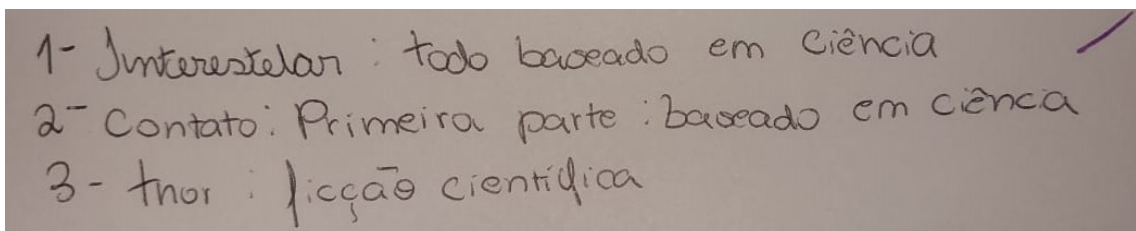 1- Interestelar : todo baseado em Ciência
2- Contato : Primeira parte : baseado em ciência
3- thor : ficção científica